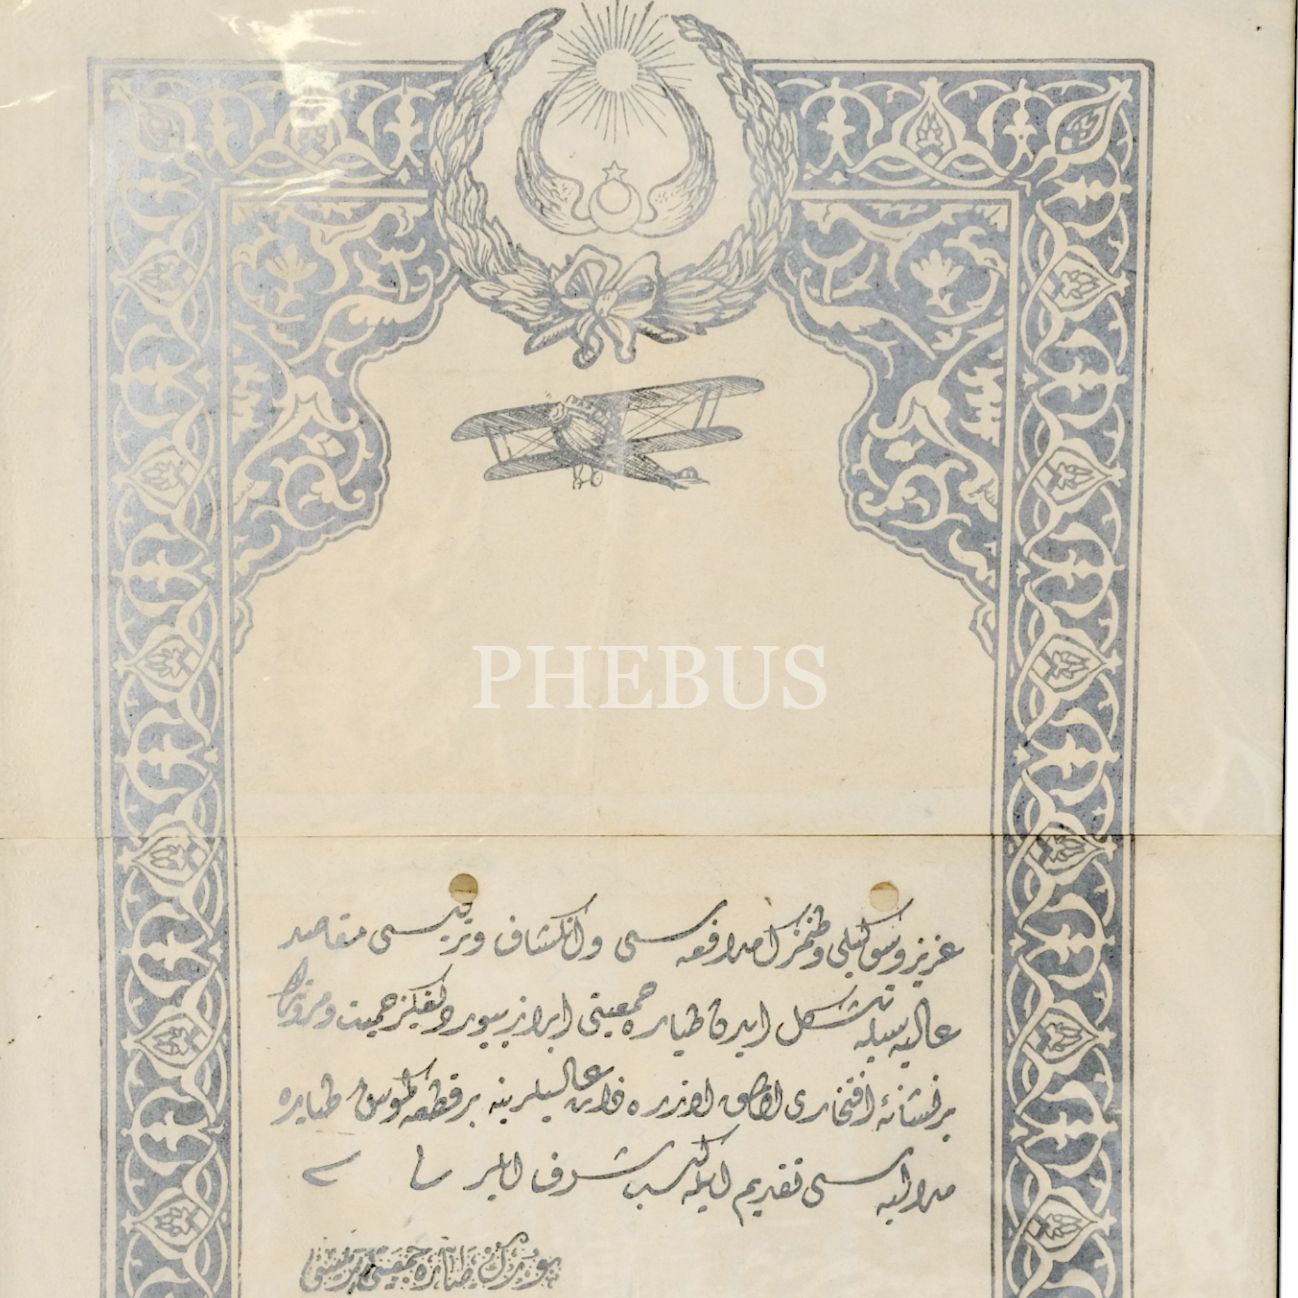 PHEBUS
عزیز و سوگیلی وطنمزك مدافعه سی و انكشاف و ترقیسی مقاصد
عالیه سیله تشكل ایدن طیاره جمعیتی ابراز بیوردیغكز حمیت و
بر نشانهٔ افتخاری اولمق اوزره ذات عالیلرینه بر قطعه گموش طیاره
مدالیه سی تقدیم ایله كسب شرف ایلر
طیاره جمعیتی رئیسی